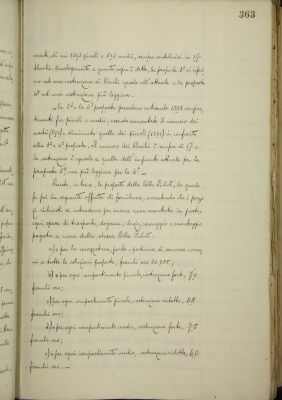 363
menti, di cui 1093 piccoli e 592 medii, sempre suddivisi in 17
blocchi. Analogamente a quanto sopra è detto, la proposta 3ª si riferi
sce ad una costruzione di blocchi eguale all'attuale e la proposta
4ª ad una costruzione più leggera. –
La 5ª e la 6ª proposta prevedono entrambe 1353 scompar
timenti fra piccoli e medii, essendo aumentato il numero dei
medii e diminuito quello dei piccoli in confronto
alla 3ª e 4ª proposta. Il numero dei blocchi è sempre di 17 e
la costruzione è eguale a quella dell'impianto attuale per la
proposta 5ª, ed è più leggera per la 6ª. –
Prende, in base, le proposte della Ditta, la quale
fa poi la seguente offerta di fornitura, avvertendo che i prezzi
richiesti si intendono per merce resa montata in posto,
ogni spesa di trasporto, dogana, dazio, carreggio e montaggio
pagata a cura della stessa Ditta:
a) per la corazzatura, porta e pattina di numero comu
ni a tutte le soluzioni proposte, franchi oro
b) per ogni scompartimento piccolo, costruzione forte, 70
franchi oro;
c) per ogni scompartimento piccolo, costruzione ridotta, 55
franchi oro;
d) per ogni scompartimento medio, costruzione forte, 75
franchi oro;
e) per ogni scompartimento medio, costruzione ridotta, 60
franchi oro; –